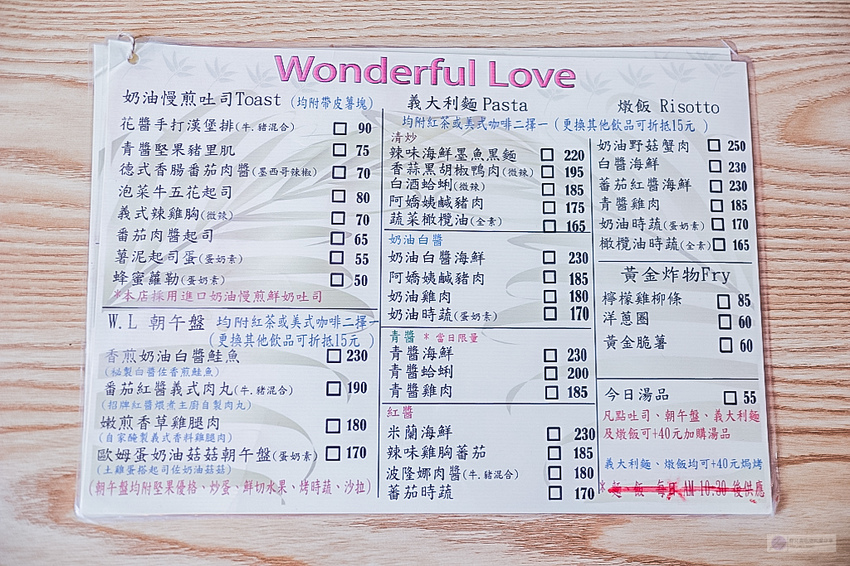 Wonderful Love
奶油慢煎吐司Toast (均附帶皮薯塊)
花醬手打漢堡排(牛.豬混合) □ 90
青醬堅果豬里肌 □ 75
德式香腸番茄肉醬(墨西哥辣椒) □ 70
泡菜牛五花起司 □ 80
義式辣雞胸(微辣) □ 70
番茄肉醬起司 □ 65
薯泥起司蛋(蛋奶素) □ 55
蜂蜜蘿勒(蛋奶素) □ 50
*本店採用進口奶油慢煎鮮奶吐司
W.L 朝午盤 均附紅茶或美式咖啡二擇一
(更換其他飲品可折抵15元)
香煎奶油白醬鮭魚 □ 230
(秘製白醬佐香煎鮭魚)
番茄紅醬義式肉丸(牛.豬混合) □ 190
(招牌紅醬煨煮主廚自製肉丸)
嫩煎香草雞腿肉 □ 180
(自家醃製義式香料雞腿肉)
歐姆蛋奶油菇菇朝午盤(蛋奶素) □ 170
(土雞蛋搭起司佐奶油菇菇)
(朝午盤均附堅果優格、炒蛋、鮮切水果、烤時蔬、沙拉)
義大利麵 Pasta
均附紅茶或美式咖啡二擇一 (更換其他飲品可折抵15元)
清炒
辣味海鮮墨魚黑麵 □ 220
香蒜黑胡椒鴨肉(微辣) □ 195
白酒蛤蜊(微辣) □ 185
阿嬌姨鹹豬肉 □ 175
蔬菜橄欖油(全素) □ 165
奶油白醬
奶油白醬海鮮 □ 230
阿嬌姨鹹豬肉 □ 185
奶油雞肉 □ 180
奶油時蔬(蛋奶素) □ 170
青醬 *當日限量
青醬海鮮 □ 230
青醬蛤蜊 □ 200
青醬雞肉 □ 185
紅醬
米蘭海鮮 □ 230
辣味雞胸番茄 □ 185
波隆娜肉醬(牛.豬混合) □ 180
番茄時蔬 □ 170
燉飯 Risotto
奶油野菇蟹肉 □ 250
白醬海鮮 □ 230
蕃茄紅醬海鮮 □ 230
青醬雞肉 □ 185
奶油時蔬(蛋奶素) □ 170
橄欖油時蔬(全素) □ 165
黃金炸物Fry
檸檬雞柳條 □ 85
洋蔥圈 □ 60
黃金脆薯 □ 60
今日湯品 □ 55
凡點吐司、朝午盤、義大利麵
及燉飯可+40元加購湯品
義大利麵、燉飯均可+40元焗烤
*麵、飯 每日 AM 10:30 後供應